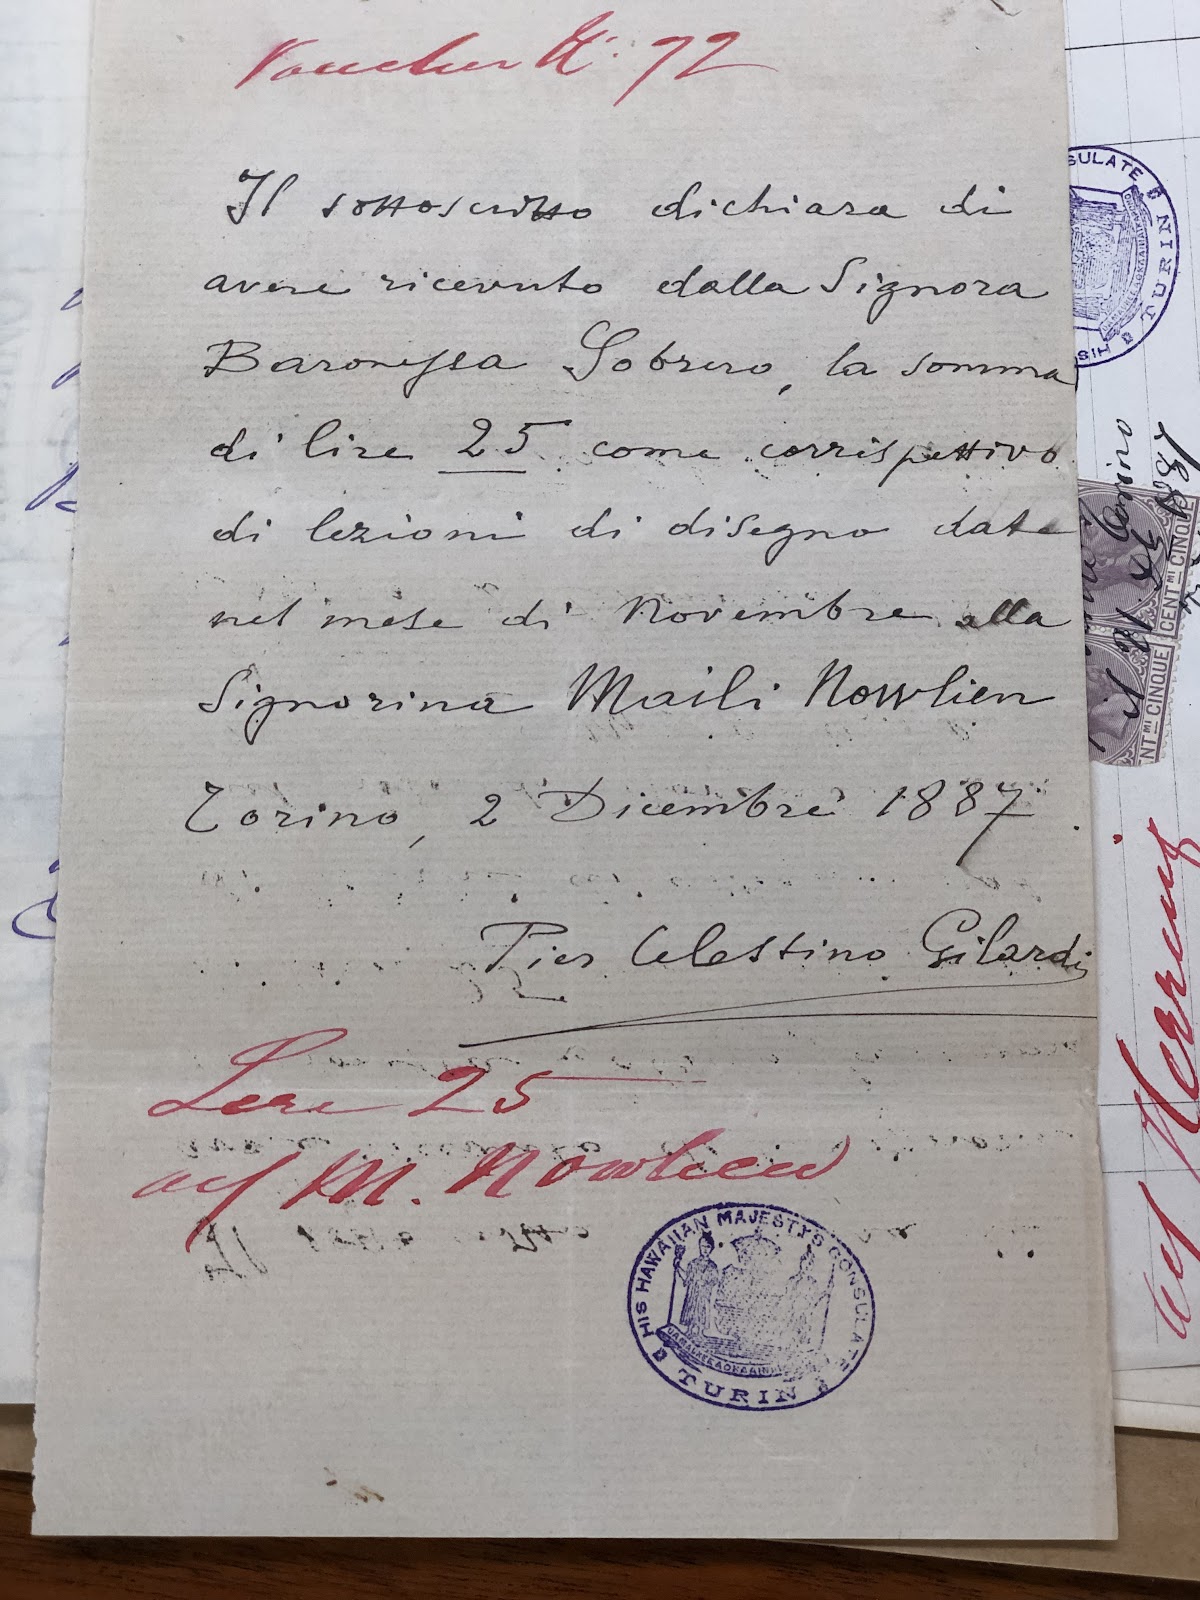 Voucher N. 72
Il sottoscritto dichiara di
avere ricevuto dalla Signora
Baronessa Sobrero, la somma
di lire 25 come corrispettivo
di lezioni di disegno date
nel mese di Novembre alla
Signorina Maili Nowlien
Torino, 2 Dicembre 1887.
Pier Celestino Gilardi
Lere 25
M. Nowlien
HIS HAWAIIAN MAJESTY'S CONSULATE
TURIN
SULATE
TURIN
HIS
Torino
1887
CENT.MI CINQUE
ENT.MI CINQUE
Herring